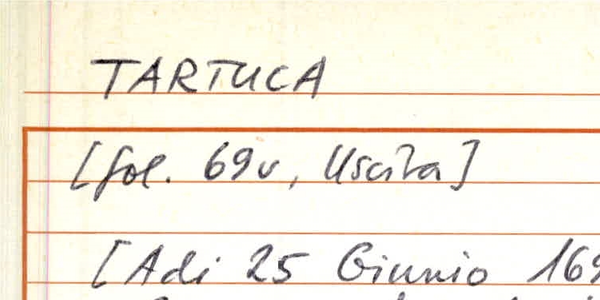 TARTUCA
[fol. 69v, Uscita]
[Adi 25 Giunio 169